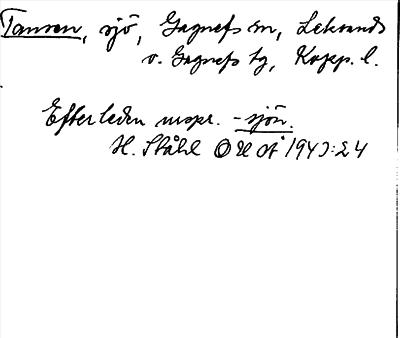 Tansen, sjö, Gagnefs sn, Leksands
o. Gagnefs tg, Kopp. l.
Efterleden urspr. -sjön.
H. Ståhl OUÅ 1943:24